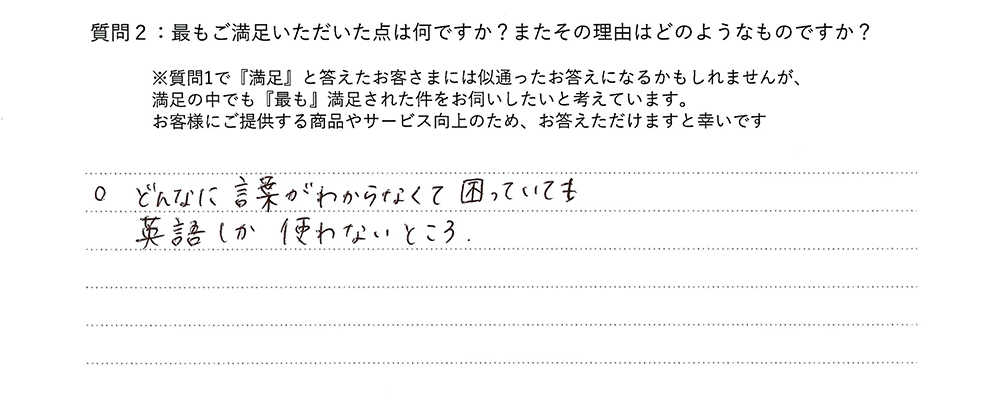 質問２：最もご満足いただいた点は何ですか？またその理由はどのようなものですか？
※質問1で『満足』と答えたお客さまには似通ったお答えになるかもしれませんが、
満足の中でも『最も』満足された件をお伺いしたいと考えています。
お客様にご提供する商品やサービス向上のため、お答えただけますと幸いです
○ どんなに言葉がわからなくて困っていても
英語しか使わないところ.